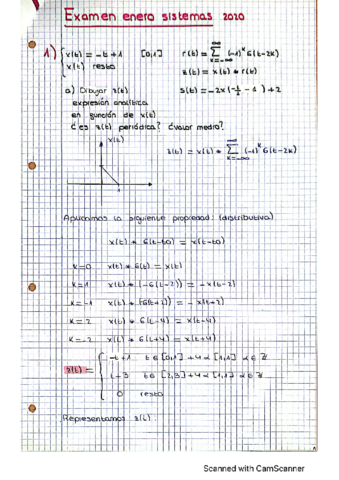 Examen enero sistemas 2020
1) { x(t) = -t+1 [0,1] r(t) = ∞ Σ k=-∞ (-1)^k δ(t-2k)
x(t) resto z(t) = x(t) * r(t)
a) Dibujar z(t) s(t) = -2x(-t/2 - 1) + 2
expresión analítica
en función de x(t)
c' es z(t) periódica? ¿valor medio?
x(t)
z(t) = x(t) * ∞ Σ k=-∞ (-1)^k δ(t-2k)
1
Aplicamos la siguiente propiedad: (distributiva)
x(t) * δ(t-to) = x(t-to)
k=0 x(t) * δ(t) = x(t)
k=1 x(t) * (-δ(t-2)) = -x(t-2)
k=-1 x(t) * (-δ(t+2)) = -x(t+2)
k=2 x(t) * δ(t-4) = x(t-4)
k=-2 x(t) * δ(t+4) = x(t+4)
z(t) = { -t+1 t ∈ [0,1] + 4α [1,1] α ∈ Z
t-3 t ∈ [2,3] + 4α [1,1] α ∈ Z
0 resto
Representamos z(t):
Scanned with CamScanner